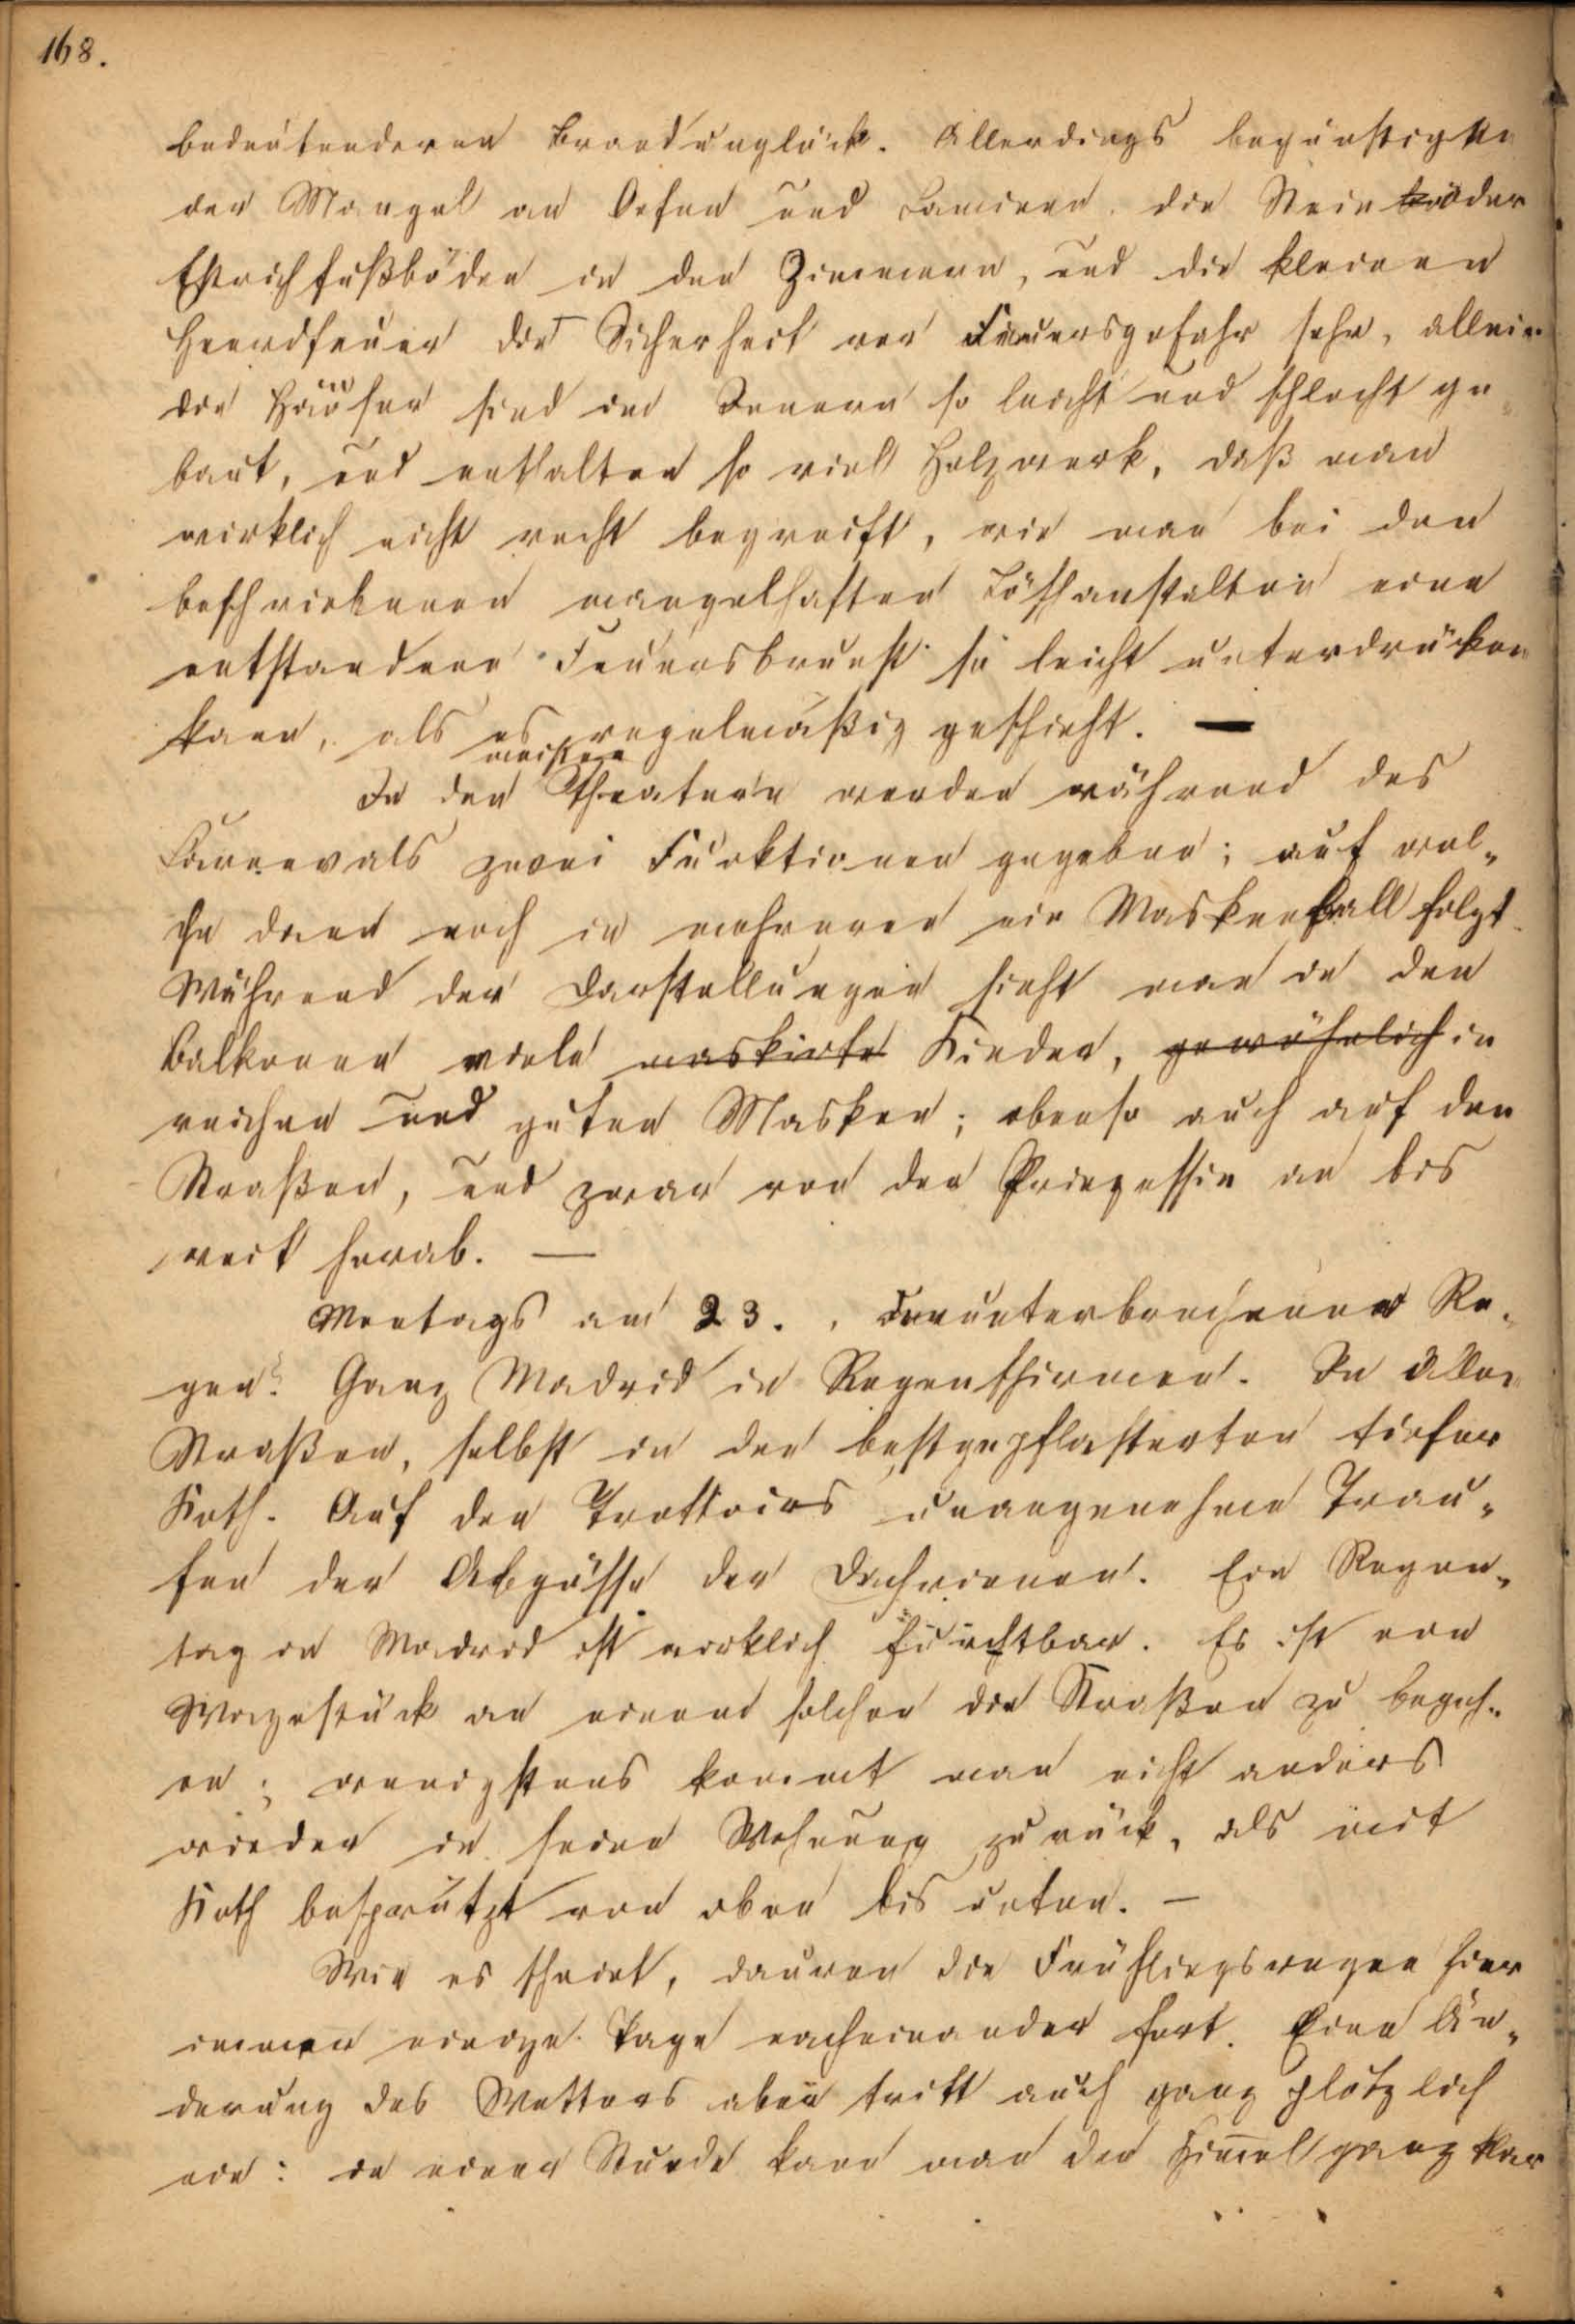 168.
bedeutenderen Brandunglück. Allerdings begünstigte
der Mangel an Oefen und Caminen, die Stein oder
Estrichfußböden in den Zimmern, und die kleinen
Heerdfeuer die Sicherheit vor Feuersgefahr sehr, allein
die Häuser sind im Innern so leicht und schlecht ge-
baut, und enthalten so viel Holzwerk, daß man
wirklich nicht recht begreift, wie man bei den
beschriebenen mangelhaften Löschanstalten eine
entstandene Feuersbrunst so leicht unterdrücken
kann, als es regelmäßig geschieht. —
meisten
In den Theatern werden während des
Carnevals zwei Funktionen gegeben; auf wel-
che dann noch in mehreren ein Maskenball folgt.
Während der Darstellungen sieht man in den
Balkonen viele maskirte Kinder, gewöhnlich in
reichen und guten Masken; ebenso auch auf den
Straßen, und zwar von der Prinzessin an bis
weit herab. —
Montags am 23., ununterbrochener Re-
gen. Ganz Madrid in Regenschirmen. In allen
Straßen, selbst in den bestgepflasterten tiefer
Koth. Auf den Trottoirs unangenehme Trau-
fen der Abgüsse der Dachrinnen. Ein Regen-
tag in Madrid ist wirklich furchtbar. Es ist ein
Wagestück an einem solchen die Straßen zu begeh-
en; wenigstens kommt man nicht anders
wieder in seine Wohnung zurück, als mit
Koth besprützt von oben bis unten. —
Wie es scheint, dauren die Frühlingsregen hier
immer einige Tage nacheinander fort. Eine Än-
derung des Wetters aber tritt auch ganz plötzlich
ein: in einer Stunde kann man den Himmel ganz klar